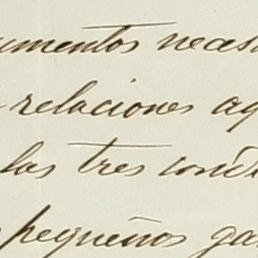 umentos neces
relaciones aq
las tres cond
pequeños ga